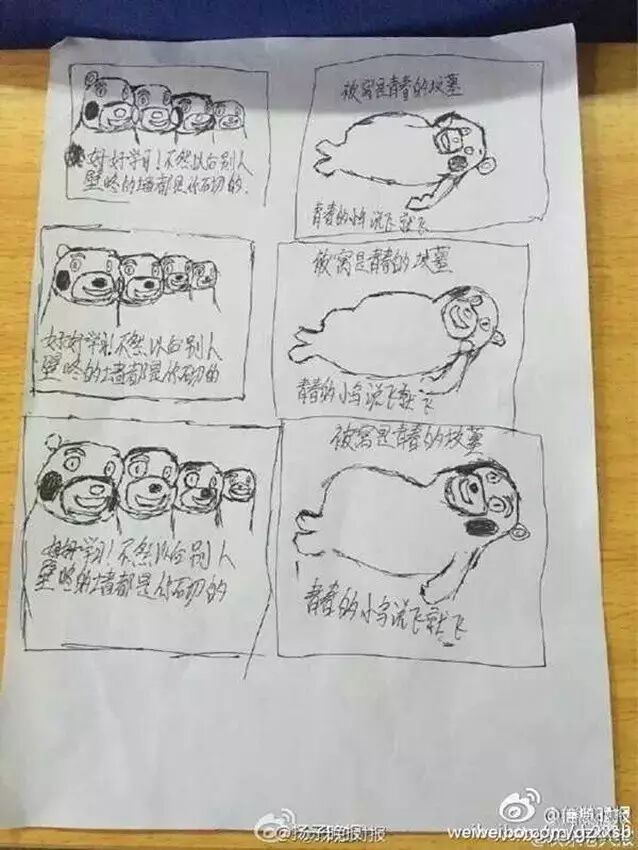 好好学习!不然以后别人
壁咚的墙都是你砌的.
被窝是青春的坟墓
青春的小鸟说飞就飞
好好学习!不然以后别人
壁咚的墙都是你砌的
被窝是青春的坟墓
青春的小鸟说飞就飞
好好学习!不然以后别人
壁咚的墙都是你砌的
被窝是青春的坟墓
青春的小鸟说飞就飞
@扬子晚报
weibo.com/gzxxsb